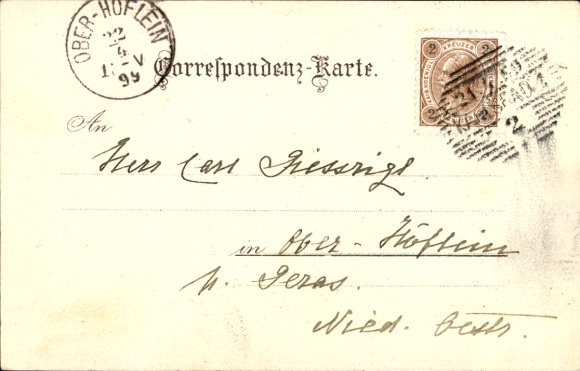 OBER-HÖFLEIN
22
4
99
Correspondenz-Karte.
2 KREUZER 2
2 2
An
Herr Carl
in Ober-Höflein
p. Geras.
Nied. Oestr.